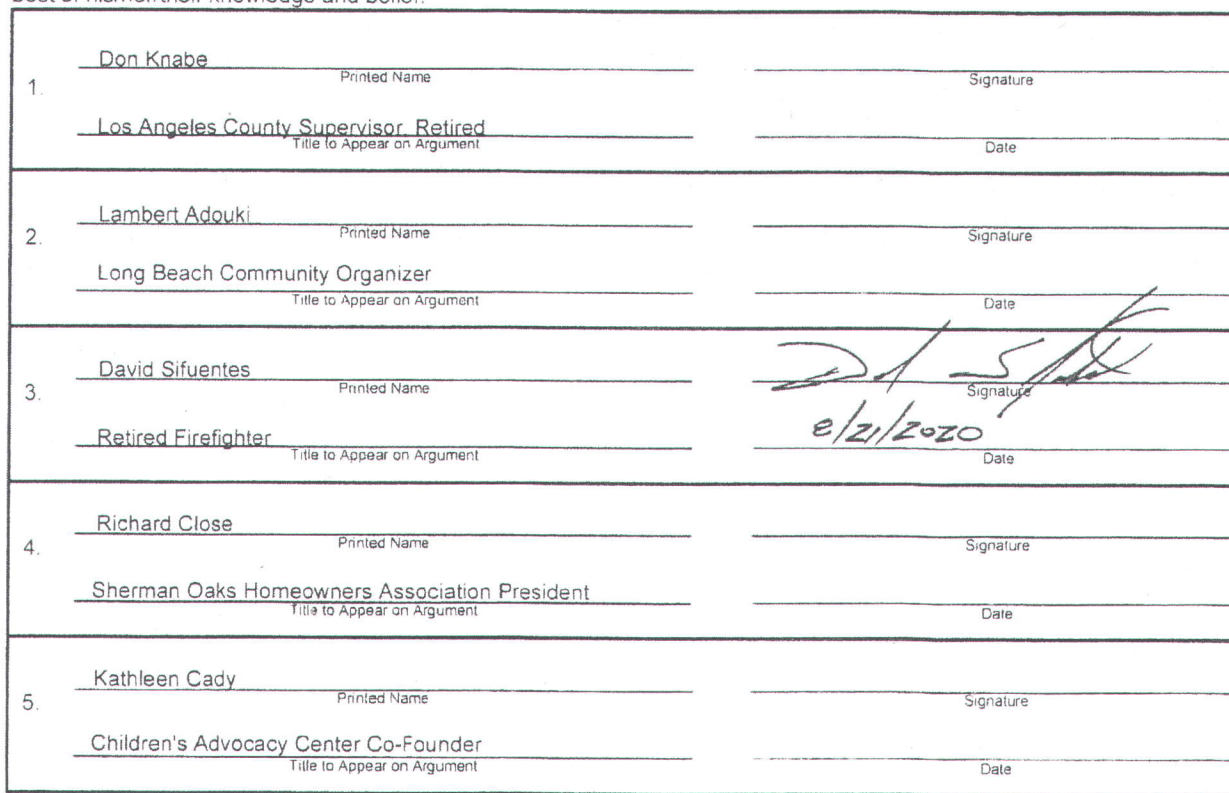 1.
Don Knabe
Printed Name
Signature
Los Angeles County Supervisor, Retired
Title to Appear on Argument
Date
2.
Lambert Adouki
Printed Name
Signature
Long Beach Community Organizer
Title to Appear on Argument
Date
3.
David Sifuentes
Printed Name
Signature
Retired Firefighter
8/21/2020
Title to Appear on Argument
Date
4.
Richard Close
Printed Name
Signature
Sherman Oaks Homeowners Association President
Title to Appear on Argument
Date
5.
Kathleen Cady
Printed Name
Signature
Children's Advocacy Center Co-Founder
Title to Appear on Argument
Date